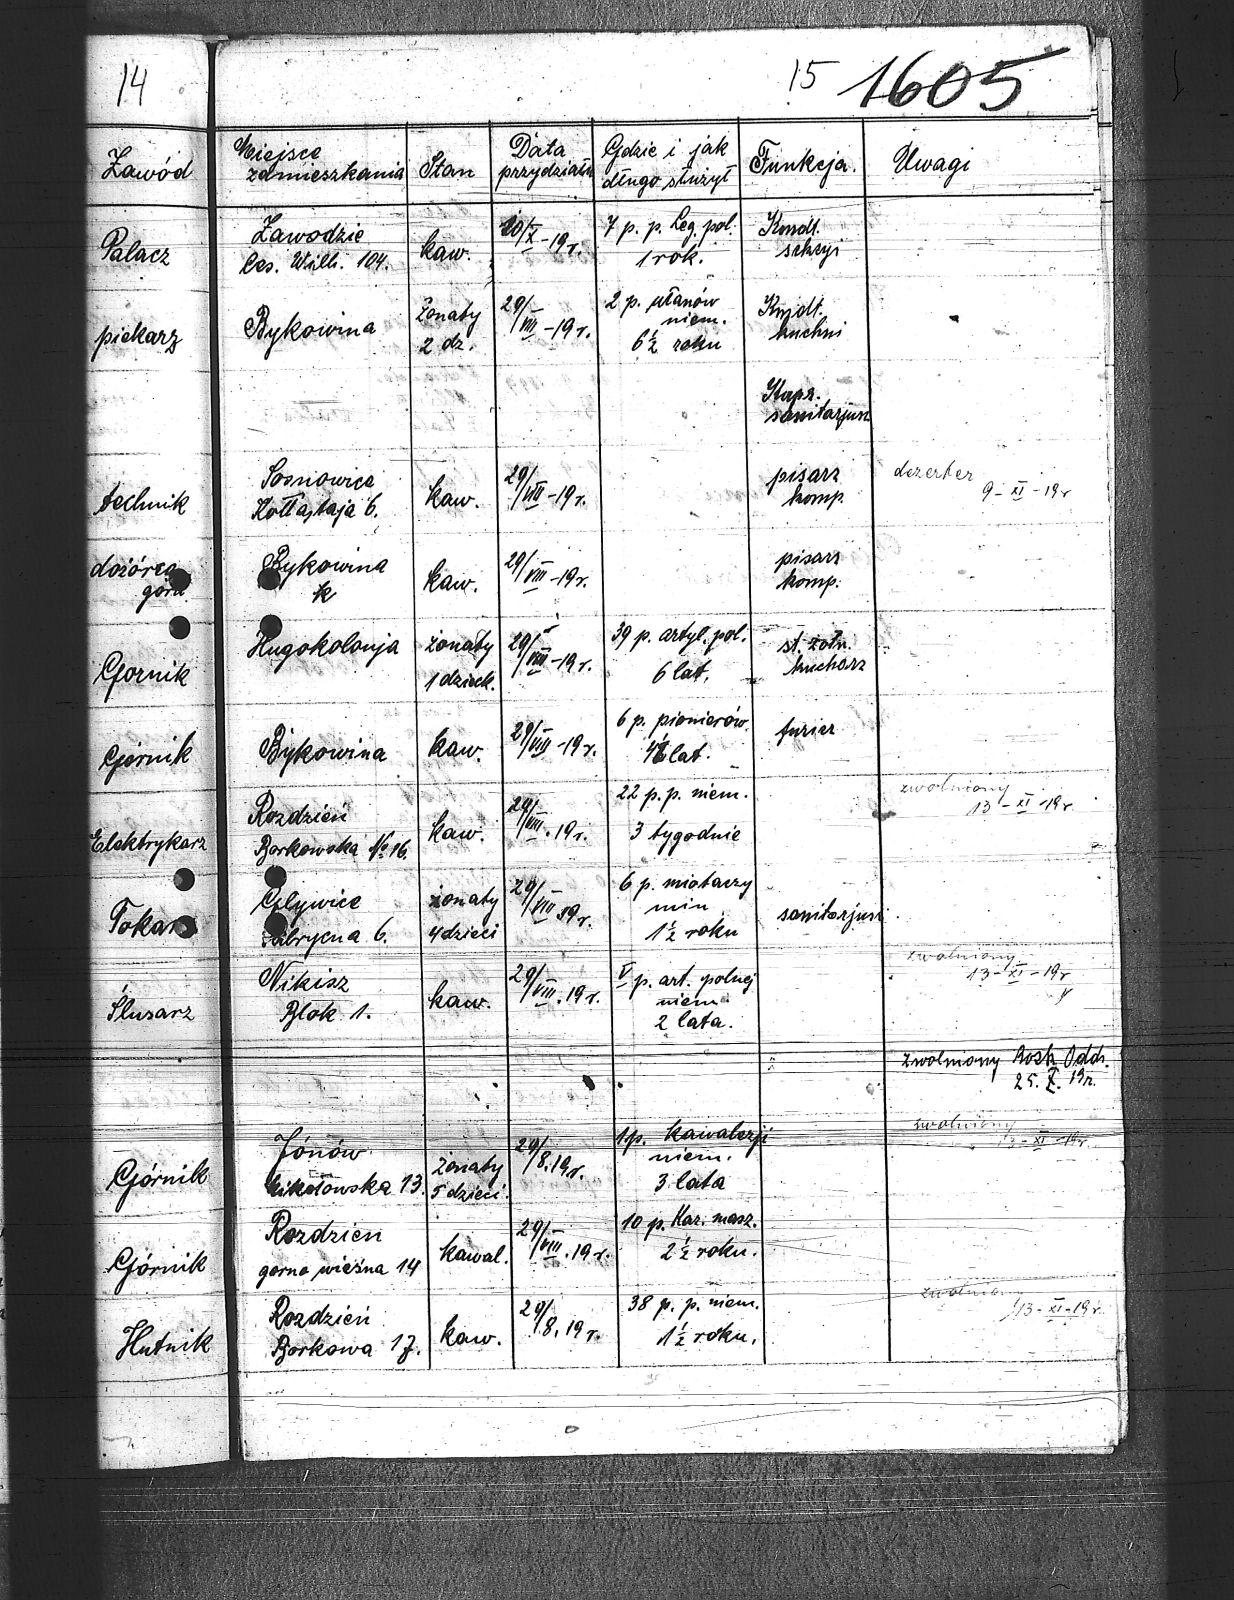 14
15 1605
Zawód Miejsce zamieszkania Stan Data przydziału Gdzie i jak długo służył Funkcja. Uwagi
Palacz Zawodzie kaw. 10/X-19r. 7 p. p. Leg. pol. Kmdt.
Ces. Wilh. 104. 1 rok. sekcji
piekarz Bykowina żonaty 29/VIII-19r. 2 p. ułanów Kmdt.
2 dz. niem. kuchni
6½ roku
Kapr.
sanitarjusz
technik Sosnowice kaw. 29/VIII-19r. pisarz dezerter
Kołłątaja 6. komp. 9-XI-19r
dozórca Bykowina kaw. 29/VIII-19r. pisarz
górn. komp.
Górnik Hugokolonja żonaty 29/VIII-19r. 39 p. artyl. pol. st. żołn.
1 dzieck. 6 lat. kucharz
Górnik Bykowina kaw. 29/VIII-19r. 6 p. pionierów furier
lat.
Elektrykarz Rozdzień kaw. 29/VIII.19r. 22 p.p. niem. zwolniony
Borkowska № 16. 3 tygodnie 13-XI-19r
Tokarz Glywice żonaty 29/VIII.19r. 6 p. miotaczy sanitarjusz
6. 4 dzieci min
1½ roku
Ślusarz Nikisz kaw. 29/VIII.19r. V p. art. polnej zwolniony
Blok 1. niem 13-XI-19r
2 lata.
zwolniony Rozk. Odd.
25.X.19r.
Górnik Jónów żonaty 29/8.19r. 1 p. kawalerji zwolniony
Mikołowska 13. 5 dzieci. niem. XI-19r
3 lata
Górnik Rozdzien kawal. 29/VIII.19r. 10 p. Kar. masz.
14 2½ roku.
Hutnik Rozdzień kaw. 29/8.19r. 38 p. p. niem. zwolnio.
Borkowa 17. 1½ roku. 13-XI-19r.